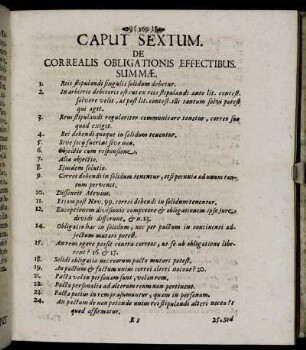 (169)
CAPUT SEXTUM.
DE
CORREALIS OBLIGATIONIS EFFECTIBUS.
SUMMÆ.
1. Reis stipulandi singulis solidum debetur.
2. In arbitrio debitoris est cui ex reis stipulandi ante lit. contest.
solvere velit, at post lit. contest. illi tantum solvi potest
qui agit.
3. Reus stipulandi regulariter communicare tenetur, correo suo
quod exigit.
4. Rei debendi quoque in solidum tenentur.
5. Sive socii fuerint sive non.
6. Objectio cum responsione.
7. Alia objectio.
8. Ejusdem solutio.
9. Correi debendi in solidum tenentur, etsi pecunia ad unum tan-
tum pervenit.
10. Dissentit Mevius.
11. Etiam post Nov. 99. correi debendi in solidum tenentur.
12. Exceptionem divisionis competere & obligationem ipso jure
dividi differunt, & n. 13.
14. Obligatio hæc in solidum, nec per pactum in continenti ad-
jectum mutari potest.
15. An reus agere possit contra correos, ut se ab obligatione libe-
rent? 16. & 17.
18. Solidi obligatio necrearum pacto mutari potest.
19. An pactum & factum unius correi alteri noceat? 20.
21. Pacta valere personam sunt, volunt rem.
22. Pacta personalia ad alterum reum non pertinent.
23. Pacta potius in rem præsumuntur, quam in personam.
24. An pactum de non petendo unius rei stipulandi alteri noceat?
quod affirmatur.
25. Sed